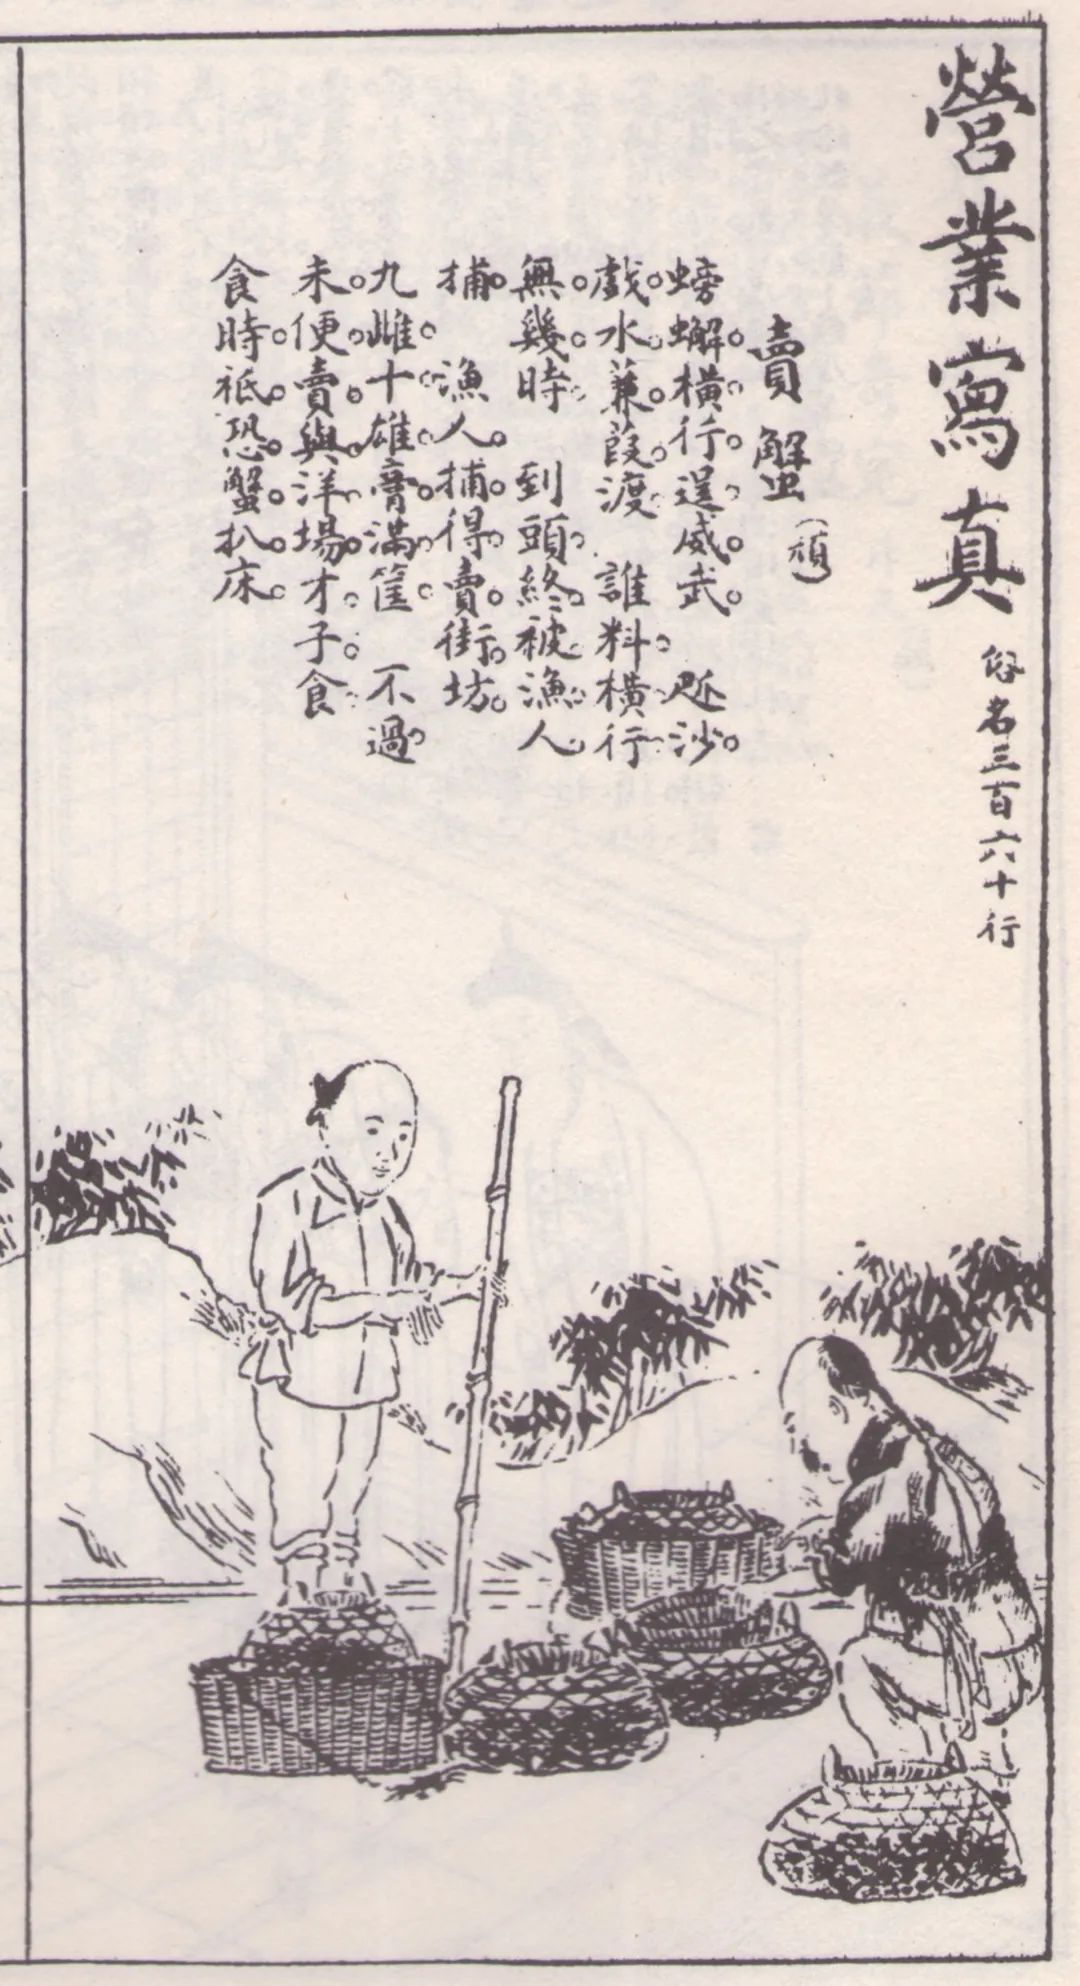 營業寫真 俗名三百六十行
賣蟹（頑）
螃蠏橫行逞威武 爬沙
戲水蒹葭渡 誰料橫行
無幾時 到頭終被漁人
捕 漁人捕得賣街坊
九雌十雄膏滿筐 不過
未便賣與洋場才子食
食時祗恐蟹扒床